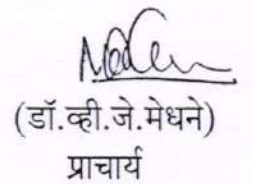 (डॉ.व्ही.जे.मेधने)
प्राचार्य